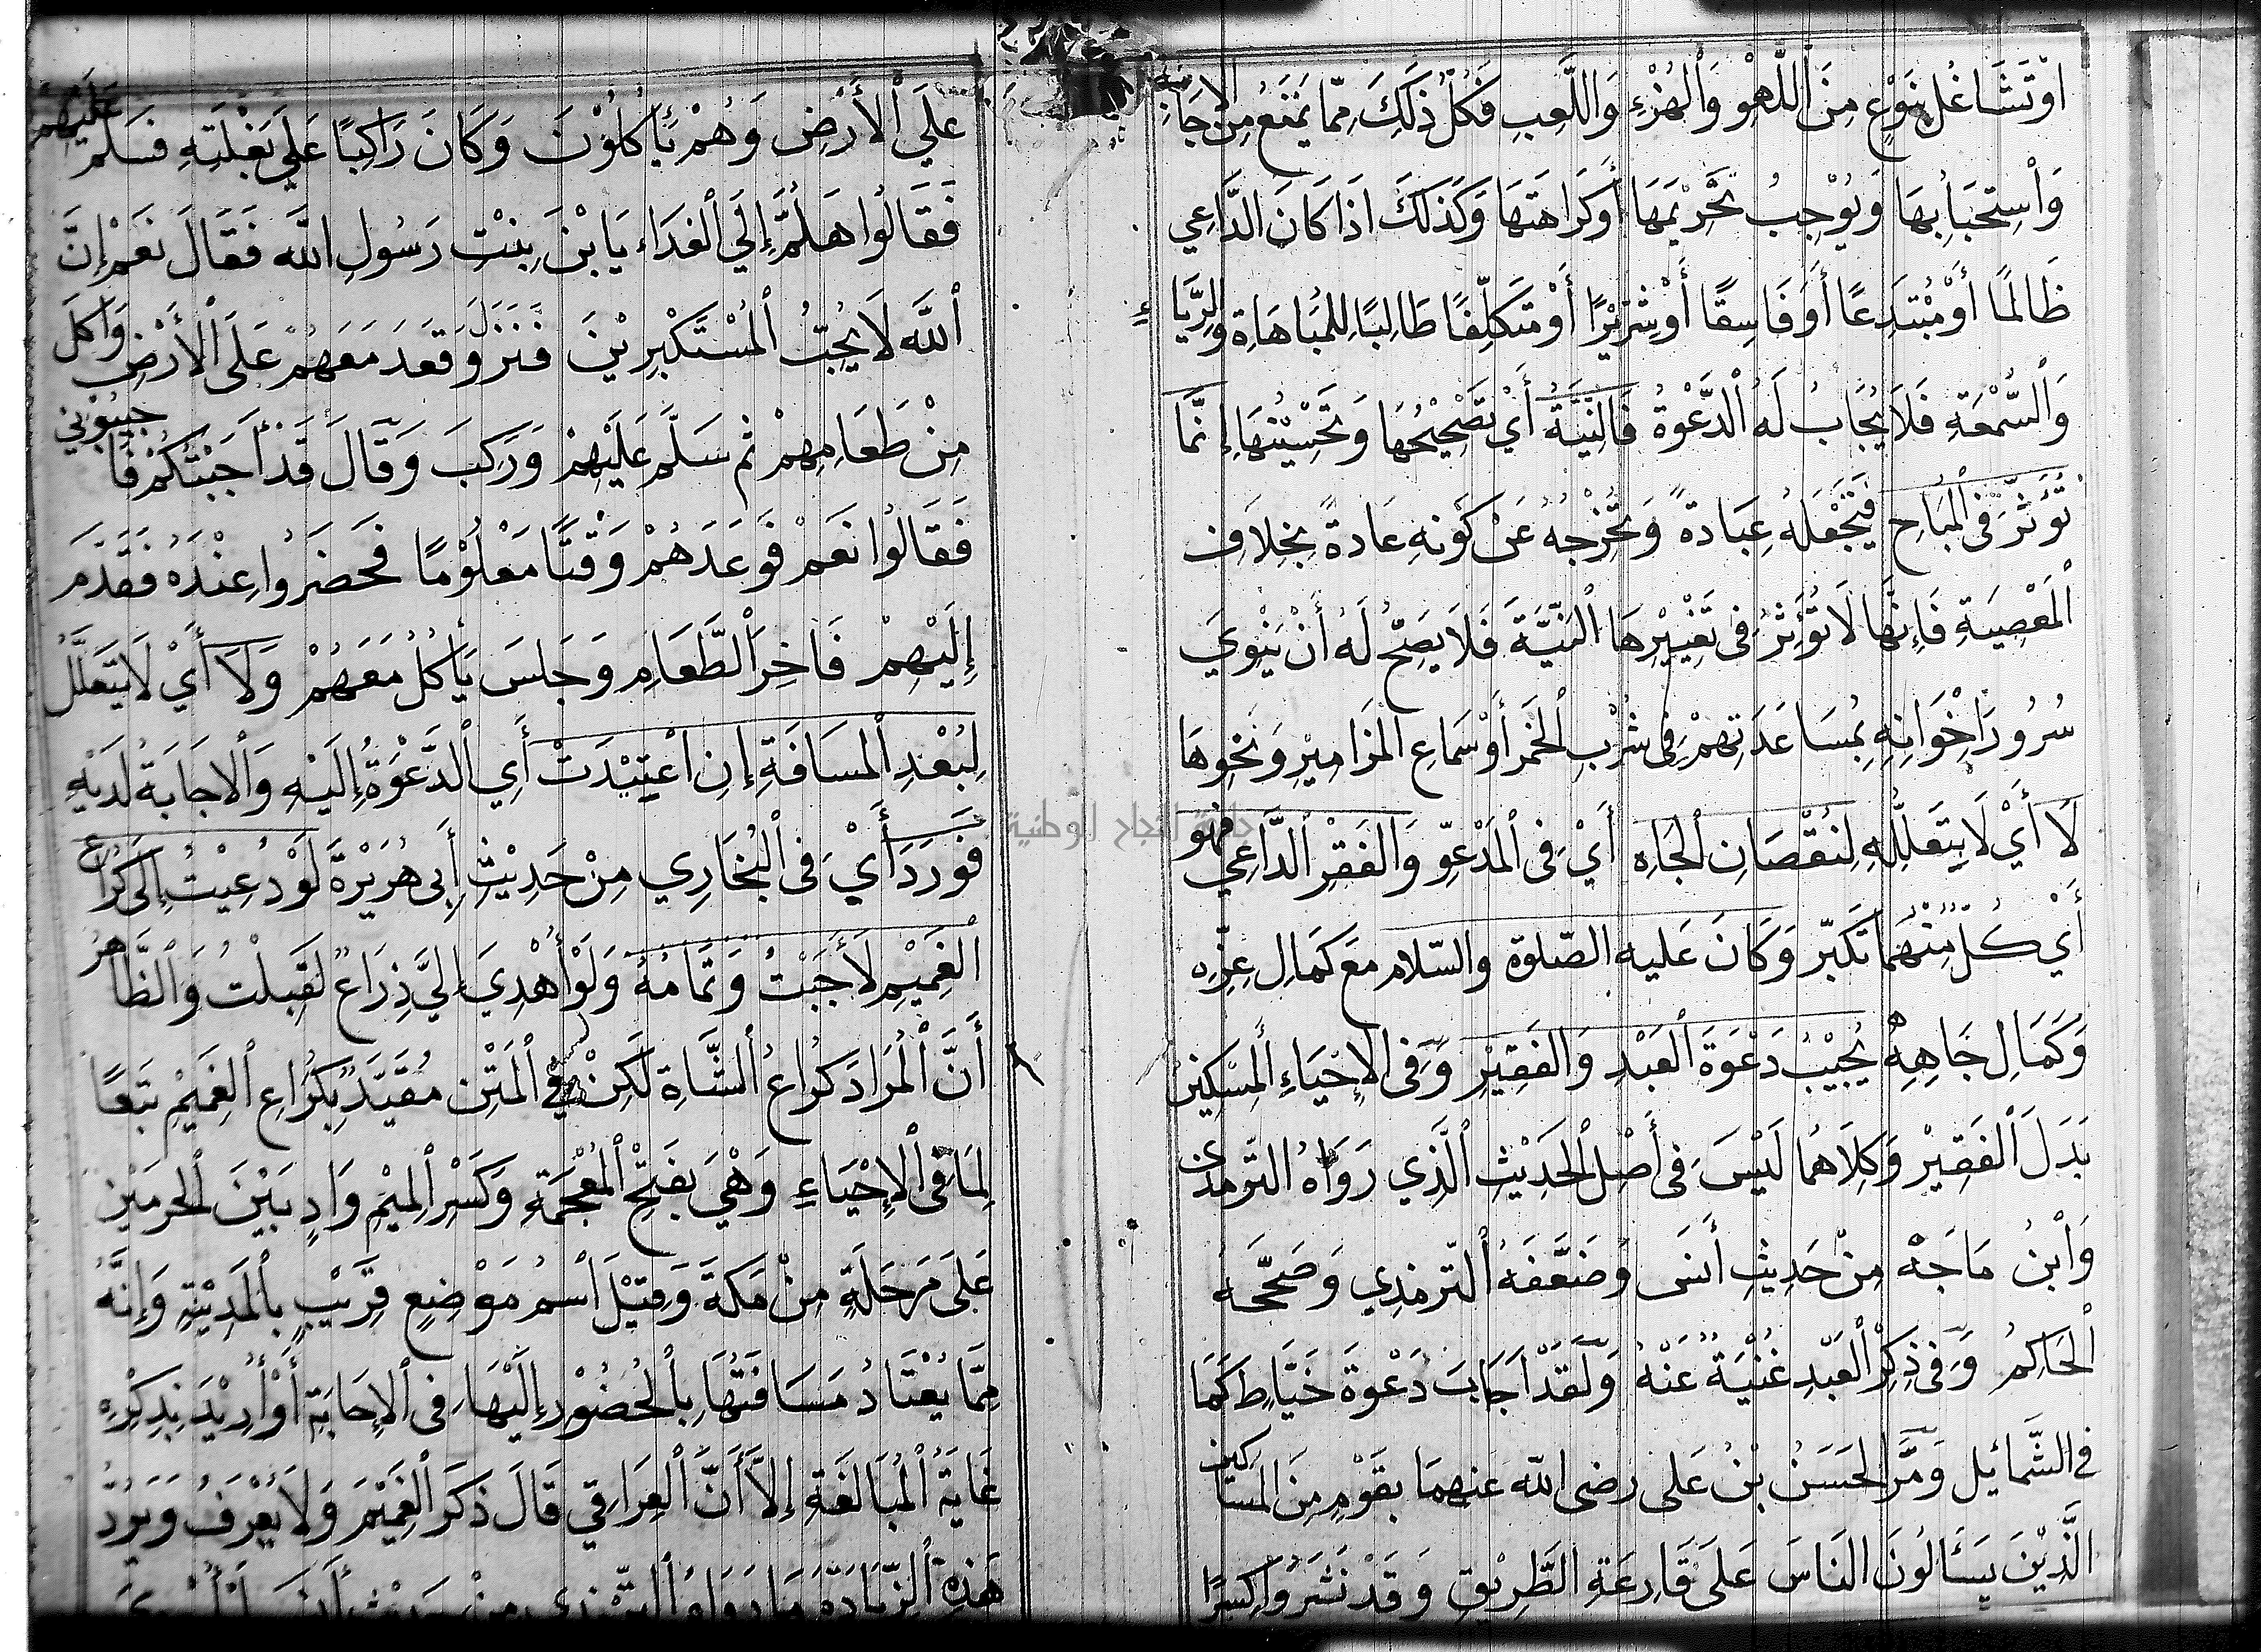 اَوْتَشَاغُل بِنَوْعٍ مِنَ ٱللَّهْوِ وَٱلْهُزْءِ وَاللَّعِبِ فَكُلُّ ذَلِكَ مِمّا يَمْنَعُ مِنَ الاِجَابَةِ
وَٱسْتِحْبَابِهَا وَيُوْجِبُ تَحْرِيْمَهَا أَوكَرَاهَتَهَا وَكَذَلِكَ اذَا كَانَ الدَّاعِي
ظَالمًا أوْمُبْتَدِعًا أَوفَاسِقًا أَوْشِرّيْرًا أَوْمُتَكَلِّفًا طَالِبًا لِلمُبَاهَاةِ وَالِرّيَاءِ
وَالسُّمْعَةِ فَلاَ يُجَابُ لَهُ ٱلدَّعْوَةُ فَالنِيَّةُ أَيْ تَصْحِيْحُهَا وَتَحْسِيْنُهَا إِنَّمَا
تُؤَثِّرُ فى ٱلمُبَاحِ فَتَجْعَلهُ عِبَادَةً وَتُخْرِجُهُ عَنْ كَوْنهِ عَادةً بِخِلاَفِ
ٱلمَعْصِيَةِ فَإِنَّهَا لاَتُؤَثِّرُ فى تَغْيِيْرِهَا ٱلنِيَّةَ فَلاَ يَصِحُّ لَهُ أَنْ يَنْوِيَ
سُرُورَ اِخْوَانِهِ بِمُسَاعَدَتِهِمْ فِى شُرْبِ ٱلخَمْرِ أَوْسَمَاعِ المَزَامِيْرِ وَنَحْوِهَا
لاَ أَيْ لاَ يَتَعَلَّلُ لِنُقْصَانِ ٱلجَاهِ أَيْ فِى ٱلمَدْعُوِّ وَالفَقْرِ ٱلدَّاعِي فهو
أَيْ كُلٌّ مِنْهُمَا تَكَبّر وَكَانَ عَليه الصّلوة والسّلام مَعَ كَمَالِ عِزِّهِ
وَكَمَالِ جَاهِهِ يُجِيْبُ دَعْوَةَ العَبْدِ وَالفَقِيْرِ وَفِى الإِحْيَاءِ ٱلمِسْكِيْنِ
بَدَلَ ٱلفَقِيْرِ وَكِلاَهُمَا لَيْسَ فى أَصْلِ ٱلحَدِيْثِ ٱلَّذِي رَوَاهُ التّرمذى
وَٱبْنُ مَاجَهْ مِنْ حَدِيثِ أَنَسَ وَضَعَّفَهُ ٱلتّرمذِي وَصَحَّحَهُ
ٱلحَاكِمُ وَفى ذِكْرِ ٱلعَبْدِ غُنْيَةٌ عَنْهُ وَلَقَدْ اَجَابَ دَعْوَةَ خَيَّاطٍ كَمَا
فى الشَّمَائِل وَمَرَّ الحَسَنُ بْنُ عَلى رضى الله عَنهمَا بقَوْمٍ مِنَ المَسَاكين
الَّذِيْنَ يَسْأَلُونَ النَاسَ عَلَى قَارِعَةِ الطَّرِيْقِ وَقَدْ نَشَرُوا كِسَرًا
عَلَي ٱلأَرْضِ وَهُمْ يَأكُلُوْنَ وَكَانَ رَاكِبًا عَلَى بَغْلَتِهِ فَسَلَّم عَلَيْهِمْ
فَقَالُوا هَلُمَّ إِلَي ٱلغَدَاء يَابْنَ بِنْتِ رَسُولِ الله فَقَالَ نَعَمْ إِنَّ
ٱللَّه لاَ يُحِبُّ ٱلمُسْتَكْبِرِيْنَ فَنَزَلَ وَقَعَدَ مَعَهُمْ عَلَى ٱلأَرْضِ وَاَكلَ
مِنْ طَعَامِهِمْ ثم سَلَّم عَلَيْهِمْ وَرَكِبَ وَقَالَ قَدْ أَجَبْتُكُمْ فَاَجِيْبُوْنِي
فَقَالُوا نَعَمْ فَوَعَدَهُمْ وَقْتًا مَعْلُوْمًا فَحَضَرُوا عِنْدَهُ فَقَدَّمَ
إِلَيْهِمْ فَاخِرَ ٱلطَّعَامِ وَجَلسَ يَأكُلُ مَعَهُمْ وَلاَ أَيْ لاَ يَتَعَلَّلُ
لِبُعْدِ ٱلمسَافَةِ إِنِ ٱعْتِيْدَتْ أَيِ ٱلدَّعْوَةُ إِلَيْهِ وَالاجَابَةُ لَدَيْهِ
فَوَرَدَ أَيْ فى ٱلبُخَارِي مِنْ حَدِيْثِ أَبِى هُرَيْرَةَ لَوْدُعِيْتُ إِلَى كُرَاع
ٱلغَمِيْمِ لأَجَبْتُ وَتَمَامُهُ وَلَوْ أُهْدِيَ إِلَيَّ ذِرَاعٌ لَقَبِلْتُ وَٱلظَّاهِرُ
أَنَّ ٱلْمُرَادَ كُرَاعُ ٱلشَّاةِ لَكِنْ فِي ٱلمَتْنِ مُقَيَّدٌ بِكُرَاعِ ٱلغَمِيْمِ تَبَعًا
لِمَا فى ٱلإِحْيَاءِ وَهْيَ بفَتْحِ ٱلمُعْجَمَةِ وَكَسْرِ ٱلمِيْمِ وَادٍ بَيْنَ ٱلحَرمَيْنِ
عَلَى مَرْحَلَةٍ مِنْ مَكَّةَ وَقِيْلَ ٱسْمُ مَوْضِعٍ قَرِيْبٍ بِٱلمَدِيْنَةِ وَإِنَّهُ
مِمَّا يُعْتَادُ مَسَافَتُهَا بِٱلحُضُوْرِ إِلَيْهَا فى ٱلإِجَابَةِ أَوْ أُرِيْدَ بذِكْرِهِ
غَايَةُ ٱلمُبَالَغَةِ إِلاَّ أَنَّ ٱلعِرَاقِي قَالَ ذكرَ ٱلغَمِيْمَ وَلاَ يُعْرَفُ وَيَرُدُّ
هَذِهِ ٱلزِّيَادَةَ مَارَوَاهُ ٱلتّرمذى مِنْ حَدِيْثِ أَنَسَ